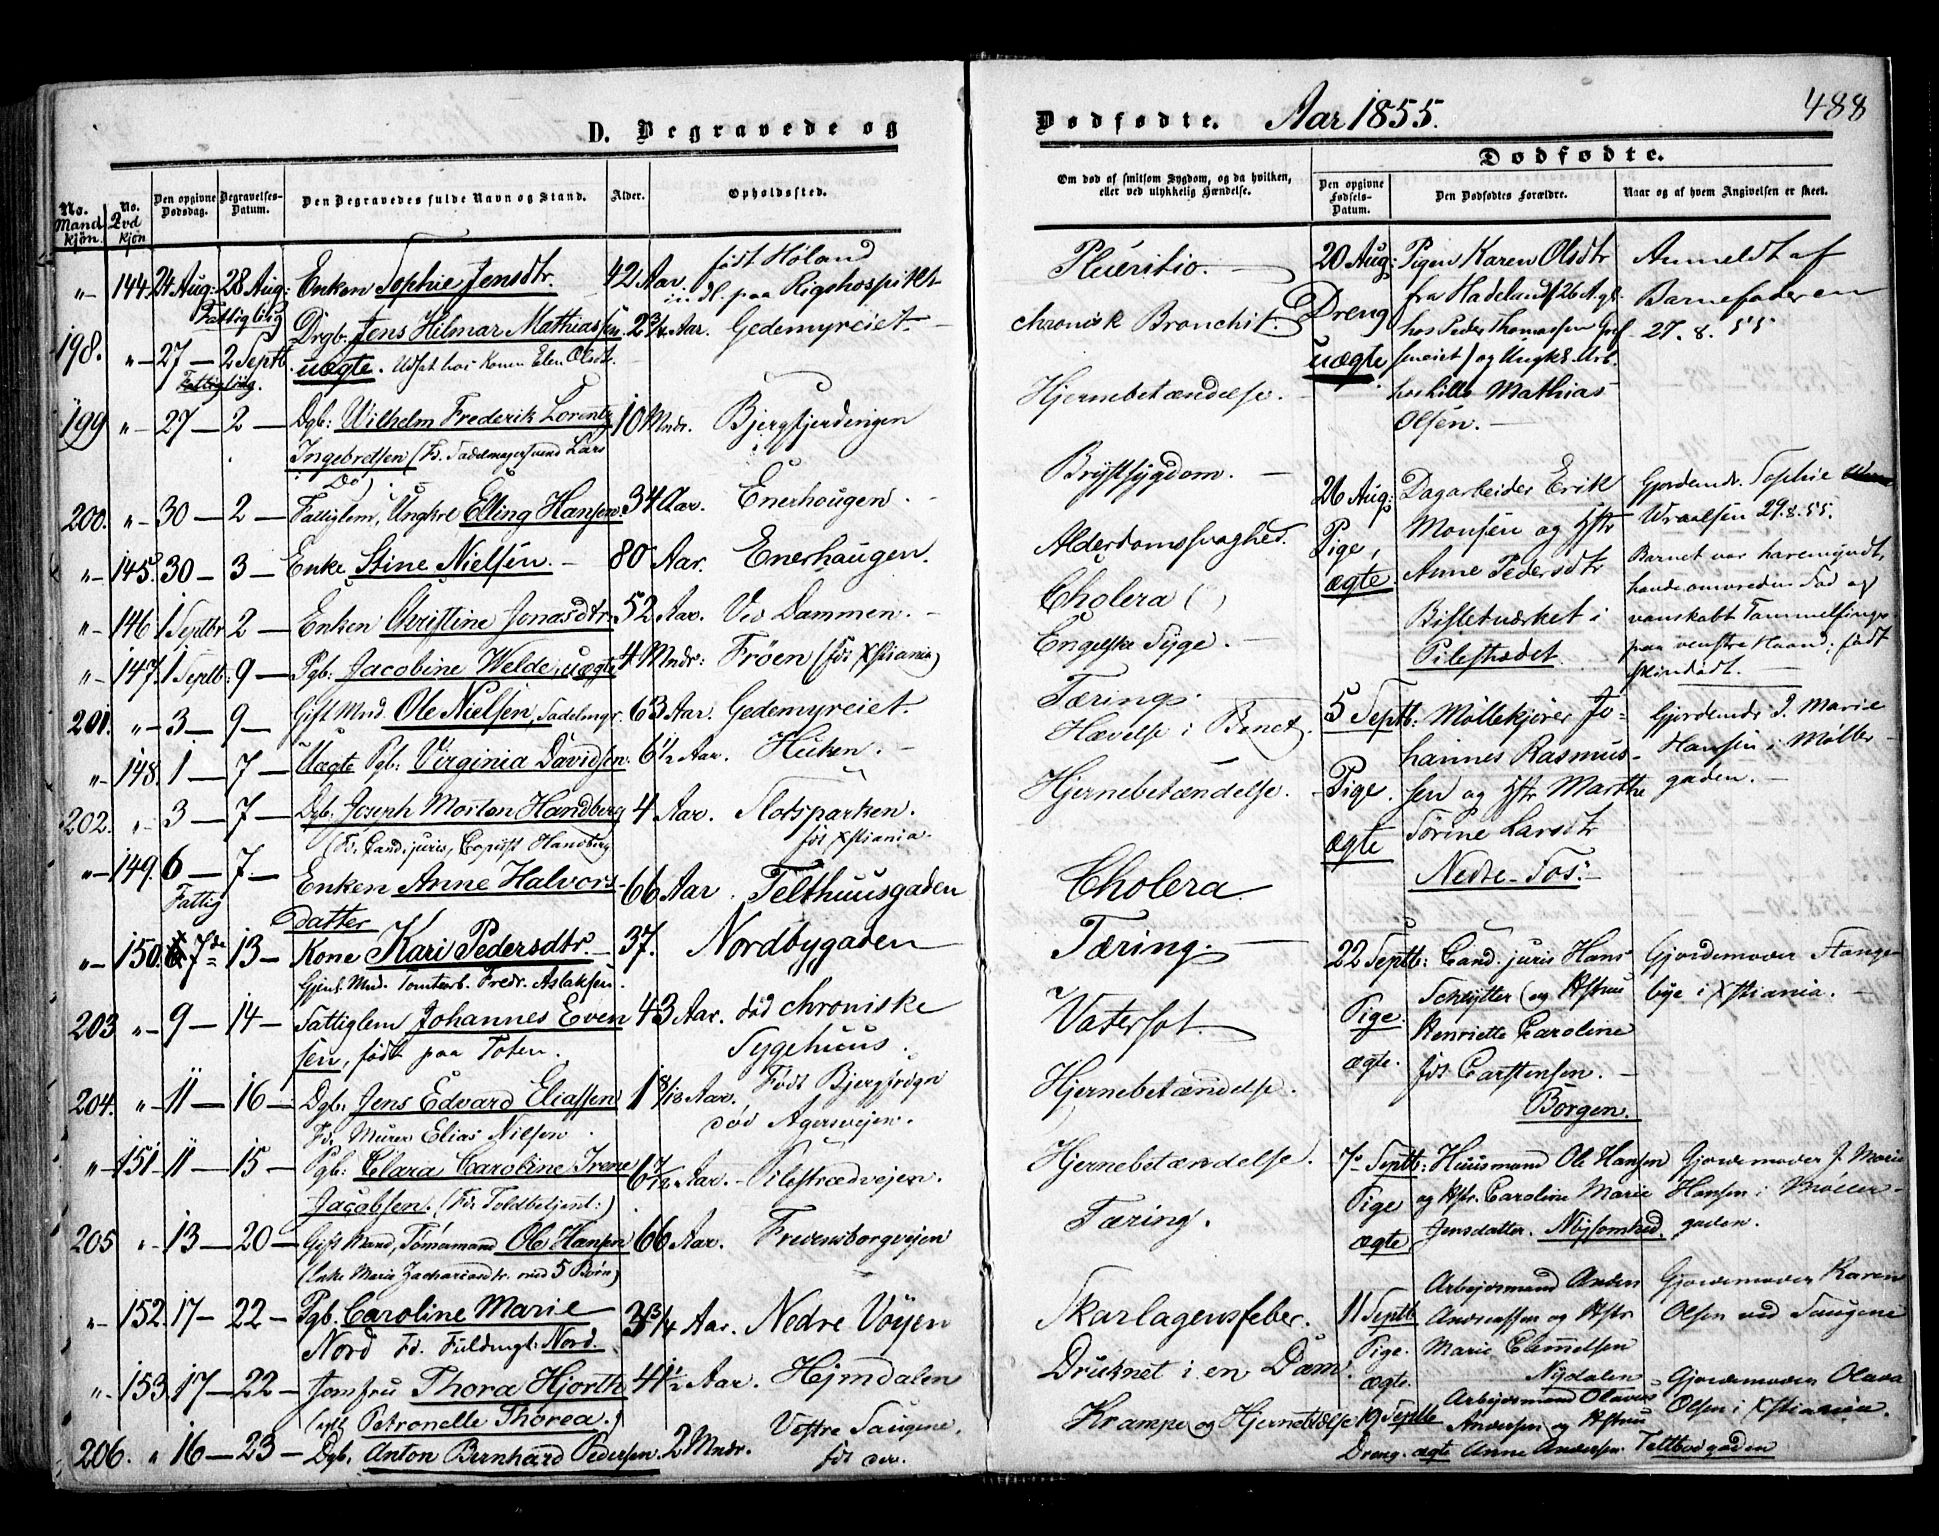 D. Begravede og
No. Mandkjøn.
No. Qvdkjøn
Den opgivne Dødsdag.
Begravelses-Datum.
Den Begravedes fulde Navn og Stand.
Alder.
Opholdssted.
"— 144 24 Aug: 28 Aug: Enken Sophie Jensdtr. 42 Aar. født Høland
Fattiglig dl. paa Rigshospitlt
198. "— 27 — 2 Septb. Drgb. Jens Hilmar Mathiassen 2 3/4 Aar. Gedemyreiet.—
Fattiglig. uægte. Udsat hos Konen Elen Olsdt.
199 "— 27 — 2 — Dgb: Wilhelm Frederik Lorentz 10 Mndr. Bjergfjerdingen
Ingebretsen (Fd. Sadelmagersvend Lars
Do)
200. "— 30 — 2 — Fattiglem, Ungkrl Elling Hansen 34 Aar. Enerhougen.—
"— 145. 30 — 3 — Enke Stine Nielsen.— 80 Aar. Enerhaugen.
"— 146 1 Septbr 2 — Enken Christine Jonasdtr. 52 Aar. Ved Dammen.—
"— 147. 1 Septb: 9 — Pgb: Jacobine Welde, uægte 4 Mndr: Frøen (fdt Xstiania)
201. "— 3 — 9 — Gift Mnd. Ole Nielsen, Sadelmgr. 63 Aar. Gedemyreiet.
"— 148. 1 — 7 — Uægte Pgb: Virginia Davidsen. 6 1/2 Aar. Huken.—
202. "— 3 — 7 — Dgb: Joseph Morten Handberg 4 Aar. Slotsparken.
(Fd. Cand. juris, Copiist Handberg fdt Xstiania.
"— 149. 6 — 7.— Enken Anne Halvors- 66 Aar. Telthuusgaden
Fattig datter
"— 150. 7de 13 — Kone Kari Pedersdtr.— 37. Nordbygaden
Gjenl. Mnd. Tomtearb. Fredr. Aslaksen.
203 "— 9 — 14 — Fattiglem Johannes Even 43 Aar. død chroniske
sen, født paa Toten. Sygehuus.
204. " 11 — 16 — Dgb. Jens Edvard Eliassen 1 8/12 Aar. Født Bjergsogn
Fdr. Murer Elias Nilsen. død Agersvejen.
"— 151. 11 — 15 — Pgb: Clara Caroline Irene 6 7/12 Aar.— Pilestrædvejen.
Jacobsen. (Fdr Toldbetjent:)
205 "— 13 — 20 — Gift Mand, Tømmermand Ole Hansen 66 Aar. Fredensborgvejen
(Enke Marie Zachariasdtr. med 5 Børn)
"— 152. 17 — 22 — Pgb. Caroline Marie 3 3/4 Aar. Nedre Vøyen
Nord Fd. Fuldmgt: Nord.
"— 153. 17 — 22 — Jomfru Thora Hjorth 41 1/2 Aar. Hejmdalen
Petronelle Thorea.)
206. " 16 — 23 — Dgb. Anton Bernhard Pedersen 2 Mndr. Vestre Saugene.
fdt der.
Dødfødte. Aar 1855. 488
Om død af smitsom Sygdom, og da hvilken, eller ved ulykkelig Hændelse.
Dødfødte.
Den opgivne Fødsels-Datum.
Den Dødfødtes Forældre.
Naar og af hvem Angivelsen er skeet.
Pleuritis.—
chronisk Bronchit.
Hjernebetændelse.—
Brystsygdom.—
Alderdomssvaghed.
Cholera ( )
Engelske Syge.—
Tærings.
Hævelse i Benet.
Hjernebetændelse.
Cholera
Tæring.—
Vatersot.
Hjernebetændelse.
Hjernebetændelse.
Tæring.
Skarlagensfeber.
Druknet i en Dam.
Krampe og Hjernebetændelse
20 Aug: Pigen Karen Olsdtr Anmeldt af
Dreng fra Hadeland Barnefaderen
uægte hos Peder Thomassen 27. 8. 55
og Ungk8. Arb.
Mathias
Olsen.—
26 Aug: Dagarbeider Erik Gjordemdr. Sophie
Pige, Monsen og Hstr Wraalsen 29.8.55.
ægte. Anne Pedersdtr Barnet var haremyndt,
Bisletværket i vanskabt Tommelfinger
Pilestrædet. paa venstre Haand: født
skindødt.
5 Septb: Møllekjører Jo- Gjordemdr J. Marie
Pige. hannes Rasmus- Hansen i Møller-
ægte sen og Hstr Marthe gaden.—
Sørine Larsdtr
Nedre-Fos:
22 Septb: Cand. juris Hans Gjordemoder Stange-
Pige. Schlytter (og Hstru bye i Xstiania.—
ægte. Henriette Caroline
fdt Carstensen.—
Borgen.
7 Septb: Huusmand Ole Hansen Gjordemoder J. Marie
Pige og Hstr. Caroline Marie Hansen i Møller-
ægte Jensdatter. Nøjsomhed. gaden.
11 Septb Arbejdsmand Anders Gjordemoder Karen
Pige. Andreassen og Hstr Olsen ved Saugene
ægte. Marie Clemetsen
Nydalen
19 Septb Arbejdsmand Olaves Gjordemoder Olava
Andersen og Hstru Olsen i Xstiania.
Dreng. ægte Anne Andersen Teltbodgaden